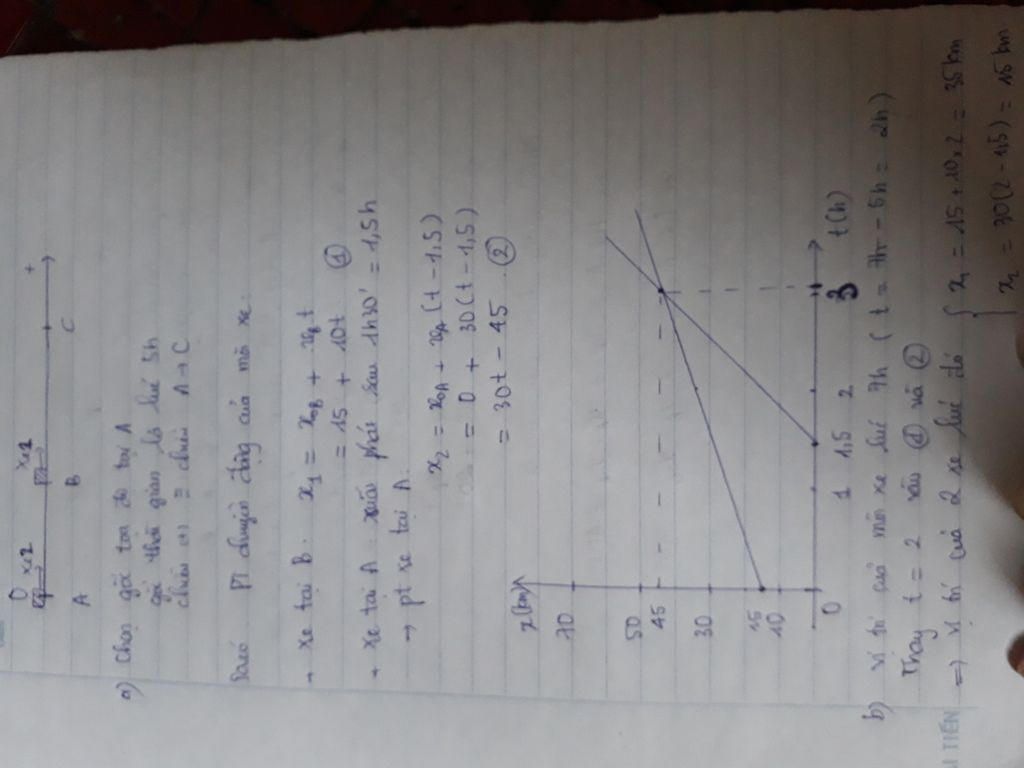 O xe2 xe1 +
A B C
a) Chọn gốc toạ độ tại A
gốc thời gian là lúc 5h
chiều (+) ≡ chiều A → C
Pt chuyển động của mỗi xe:
+ xe tại B: x₁ = x₀B + vB t
= 15 + 10t ①
+ xe tại A xuất phát sau 1h30' = 1,5h
→ pt xe tại A:
x₂ = x₀A + vA (t - 1,5)
= 0 + 30(t - 1,5)
= 30t - 45 ②
x(km)
70
50
45
30
15
10
0 1 1,5 2 3 t(h)
b) Vị trí của mỗi xe lúc 7h ( t = 7h - 5h = 2h )
Thay t = 2 vào ① và ②
=> vị trí của 2 xe lúc đó { x₁ = 15 + 10x2 = 35km
x₂ = 30(2 - 1,5) = 15km
TIẾN